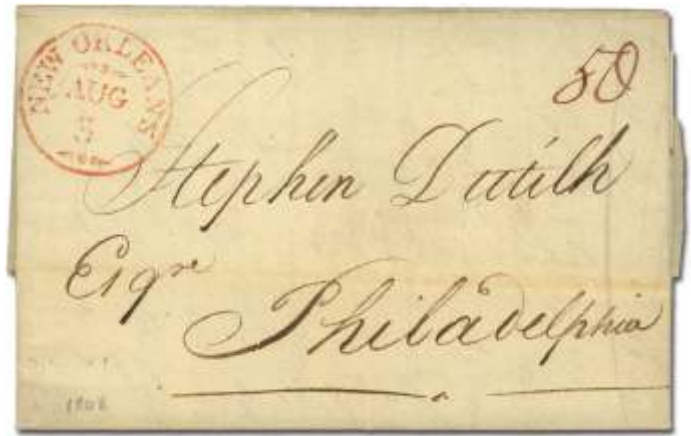 NEW ORLEANS
AUG
5
50
Stephen Dutilh
Esqre
Philadelphia